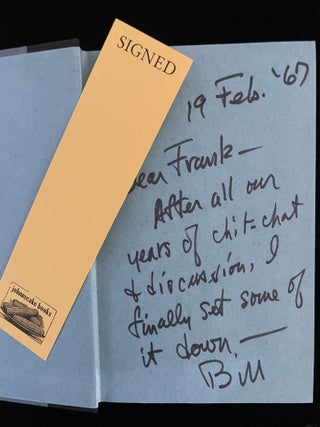 SIGNED
19 Feb. '67
Dear Frank—
After all our
years of chit-chat
& discussion, I
finally set some of
it down.—
Bill
johnnycake books